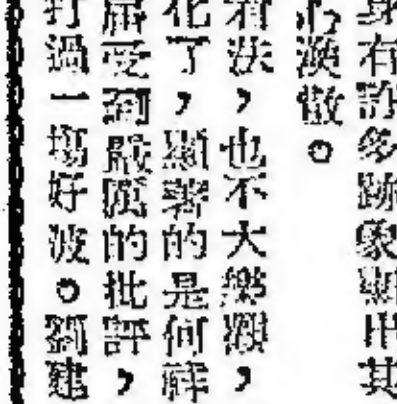 身有許多跡象顯出其
心渙散。
有法,也不大樂觀,
化了,顯著的是何祥
屆受到嚴厲的批評,
打過一場好波。劉建